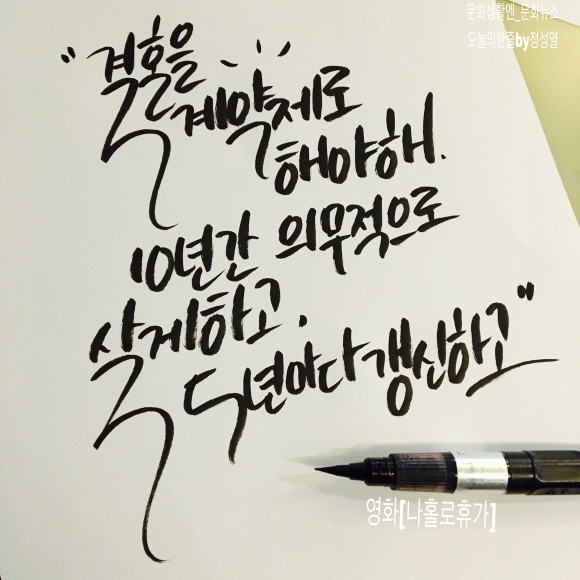 문화생활엔_문화뉴스
오늘의한줄by정성열
"결혼을
계약제로
해야해.
10년간 의무적으로
살게하고,
5년마다 갱신하고"
영화[나홀로휴가]